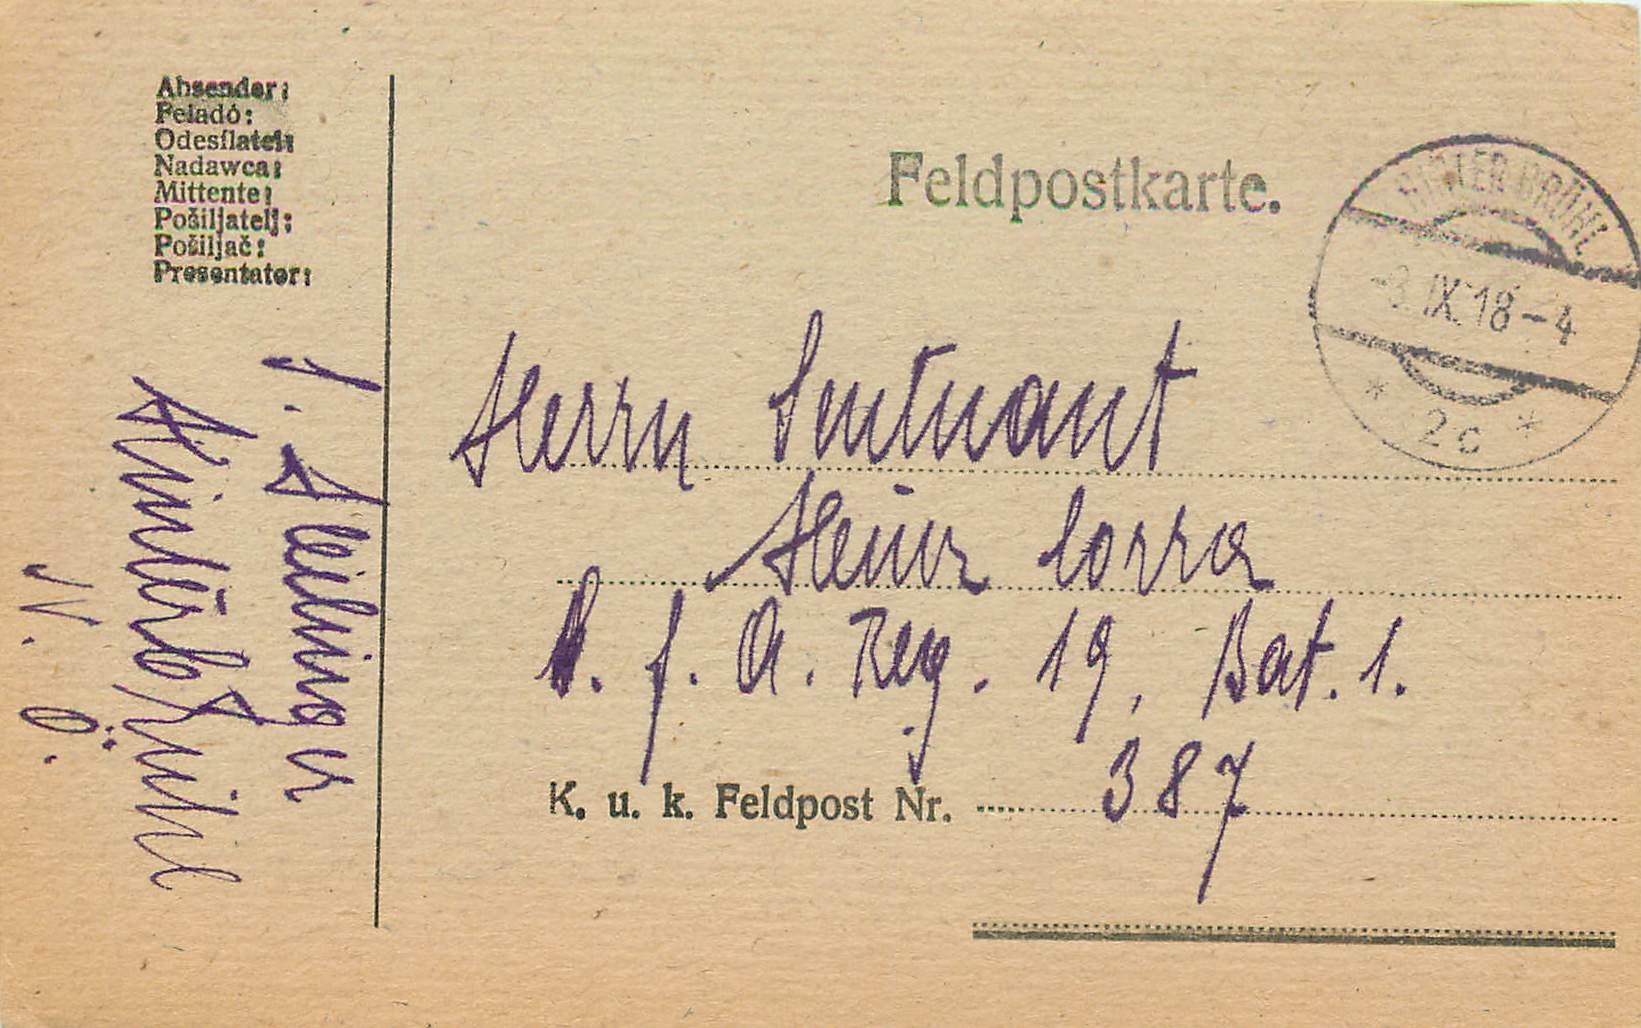 Absender:
Feladó:
Odesílatel:
Nadawca:
Mittente:
Pošiljatelj:
Pošiljač:
Presentator:
Feldpostkarte.
HINTERBRÜHL
-3. IX. 18-4
* 2c *
Herrn Leutnant
Heinz
f. A. Reg. 19, Bat. 1.
K. u. k. Feldpost Nr. 387
Hinterbrühl
N. Ö.